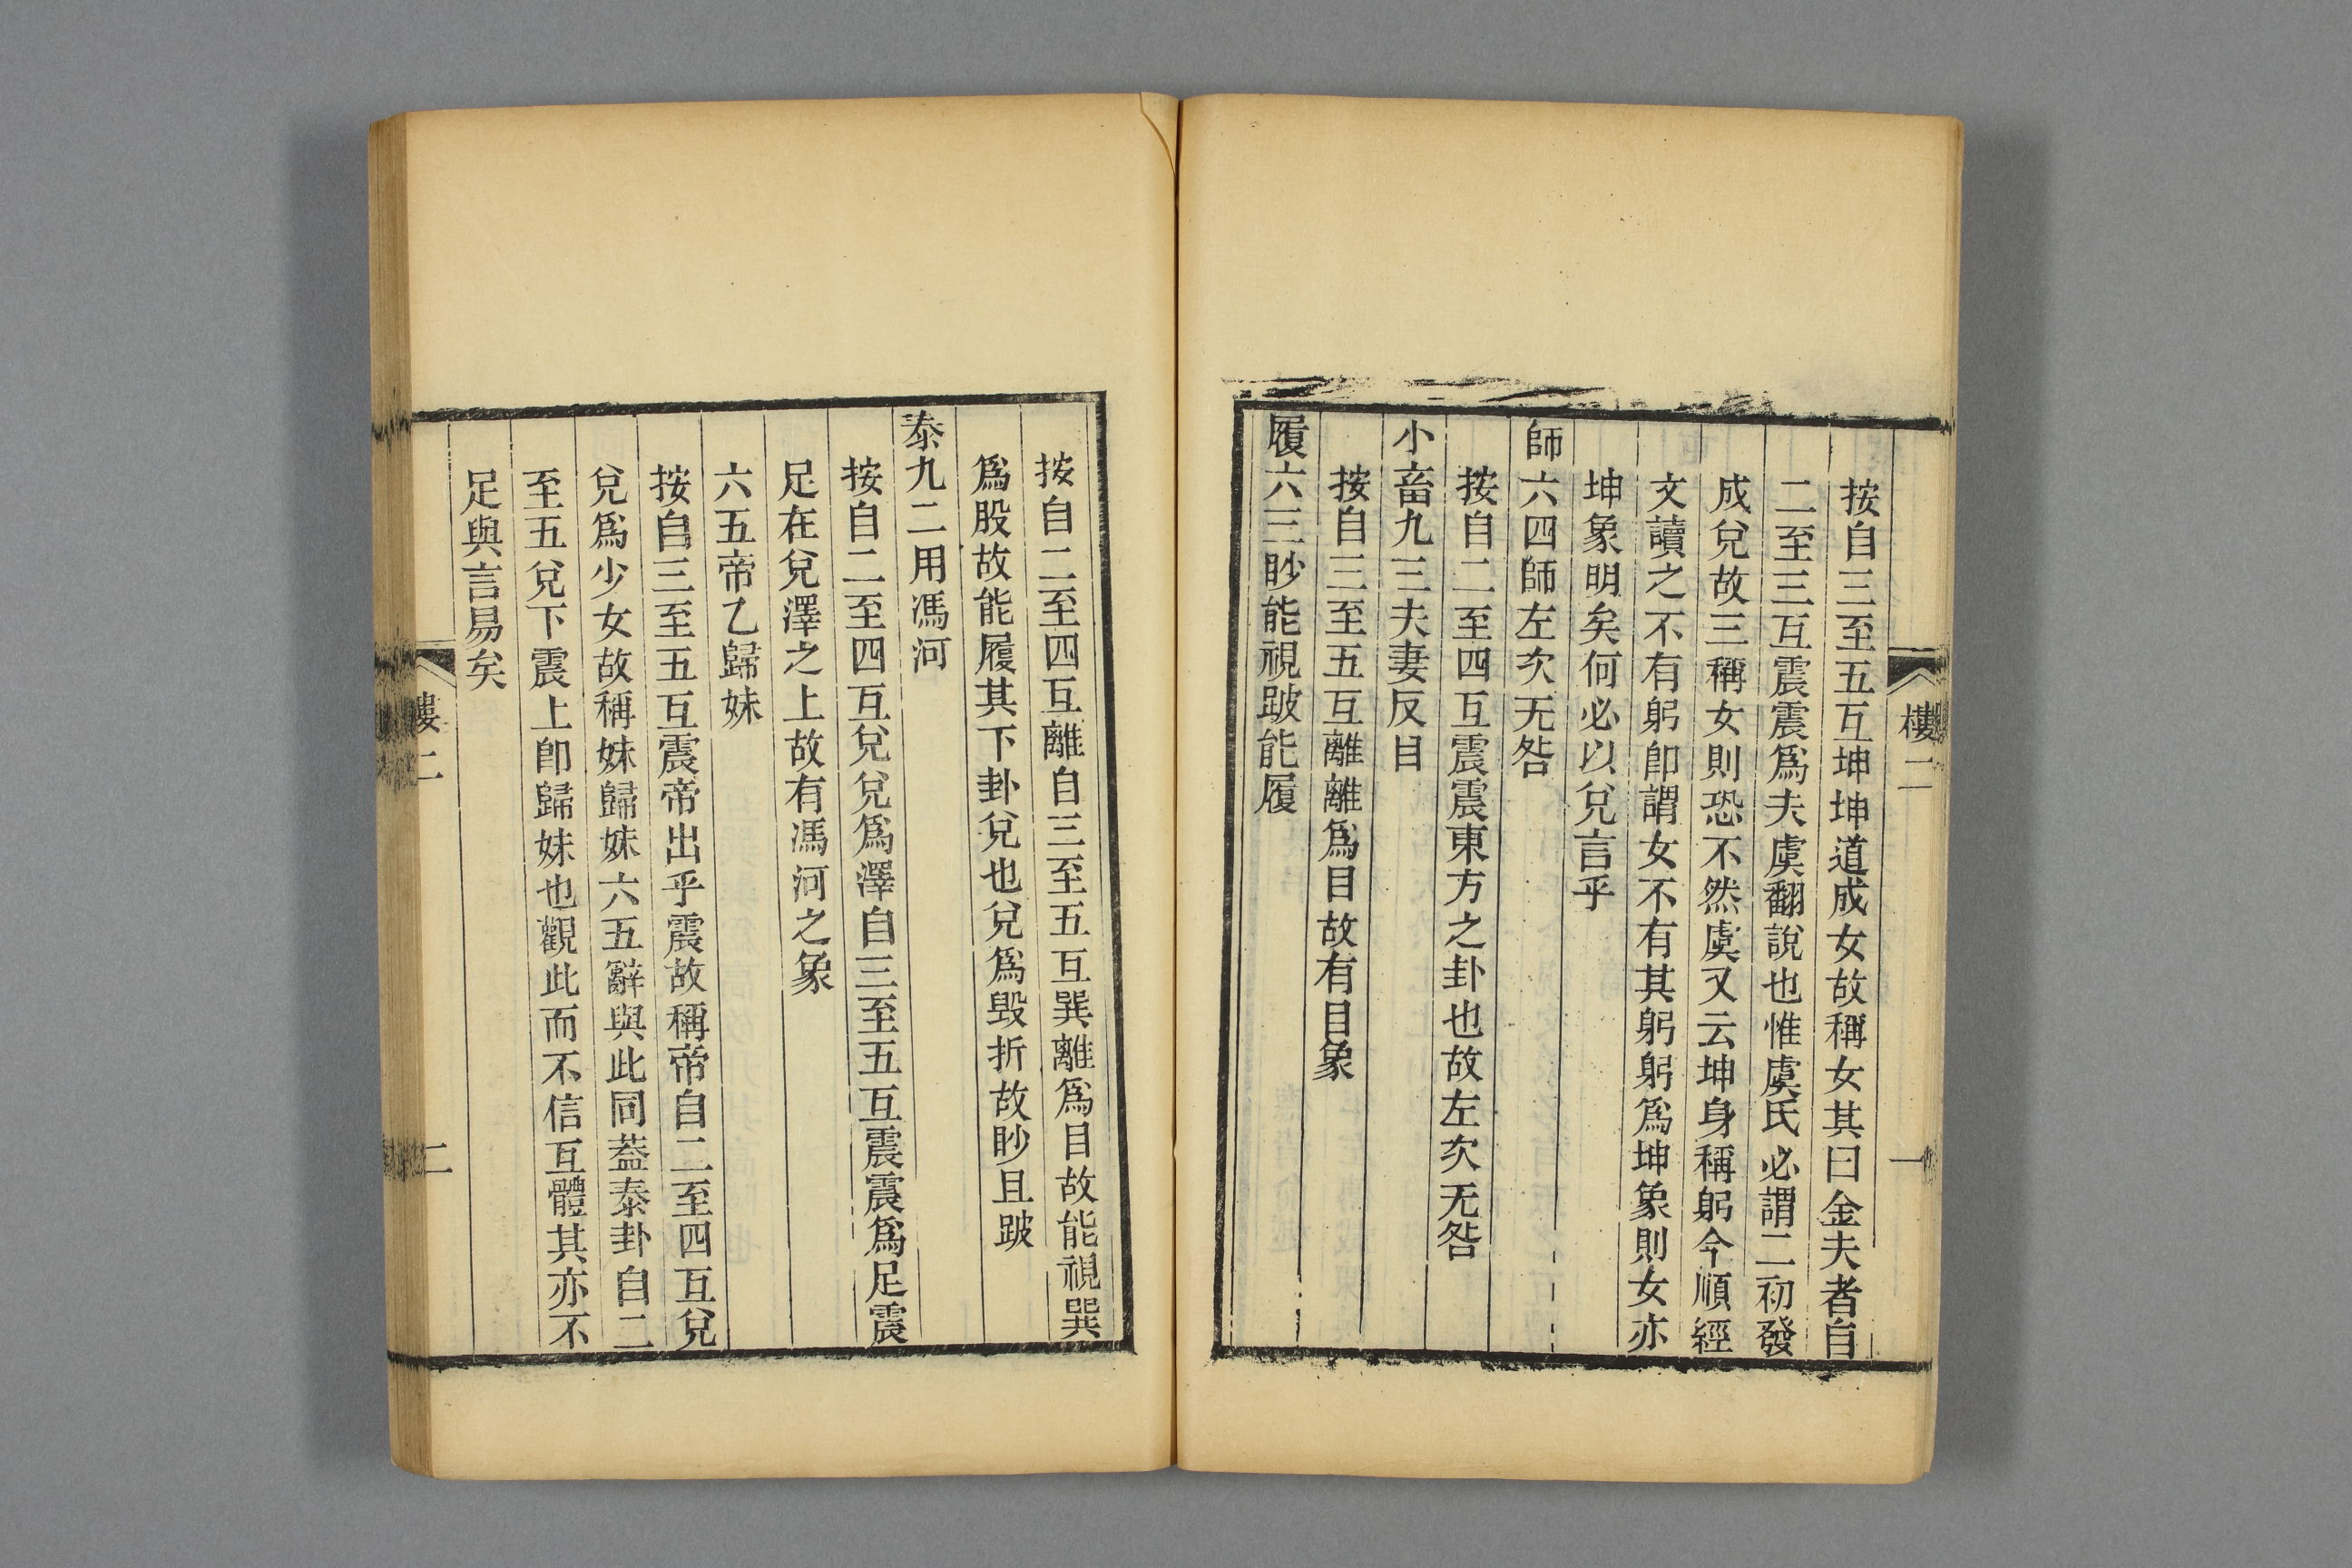 樓二
一
按自三至五互坤坤道成女故稱女其曰金夫者自
二至三互震震爲夫虞翻說也惟虞氏必謂二初發
成兌故三稱女則恐不然虞又云坤身稱躬今順經
文讀之不有躬卽謂女不有其躬躬爲坤象則女亦
坤象明矣何必以兌言乎
師六四師左次无咎
按自二至四互震震東方之卦也故左次无咎
小畜九三夫妻反目
按自三至五互離離爲目故有目象
履六三眇能視跛能履
按自二至四互離自三至五互巽離爲目故能視巽
爲股故能履其下卦兌也兌爲毀折故眇且跛
泰九二用馮河
按自二至四互兌兌爲澤自三至五互震震爲足震
足在兌澤之上故有馮河之象
六五帝乙歸妹
按自三至五互震帝出乎震故稱帝自二至四互兌
兌爲少女故稱妹歸妹六五辭與此同蓋泰卦自二
至五兌下震上卽歸妹也觀此而不信互體其亦不
足與言易矣
樓二
二